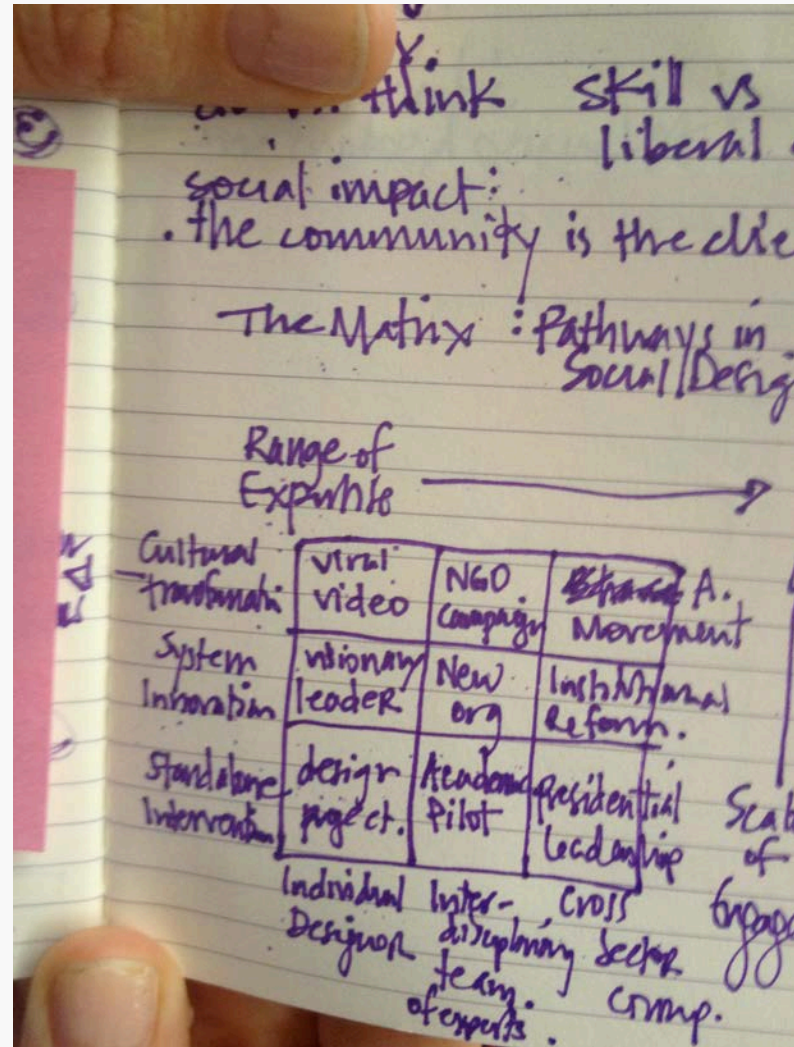 think skill vs
liberal
social impact:
. the community is the clie
The Matrix : Pathways in
Social Desig
Range of
Expertise
Cultural
viral
video
NGO.
Campaign
A.
Movement
System
Innovation
visionary
leader
New
org
Institutional
Reform.
Standalone
Intervention
design
project.
Academic
Pilot
Presidential
leadership
Scal
of
Engage
Individual
Designor
Inter-
disciplinary
team.
of experts.
Cross
Sector
comp.